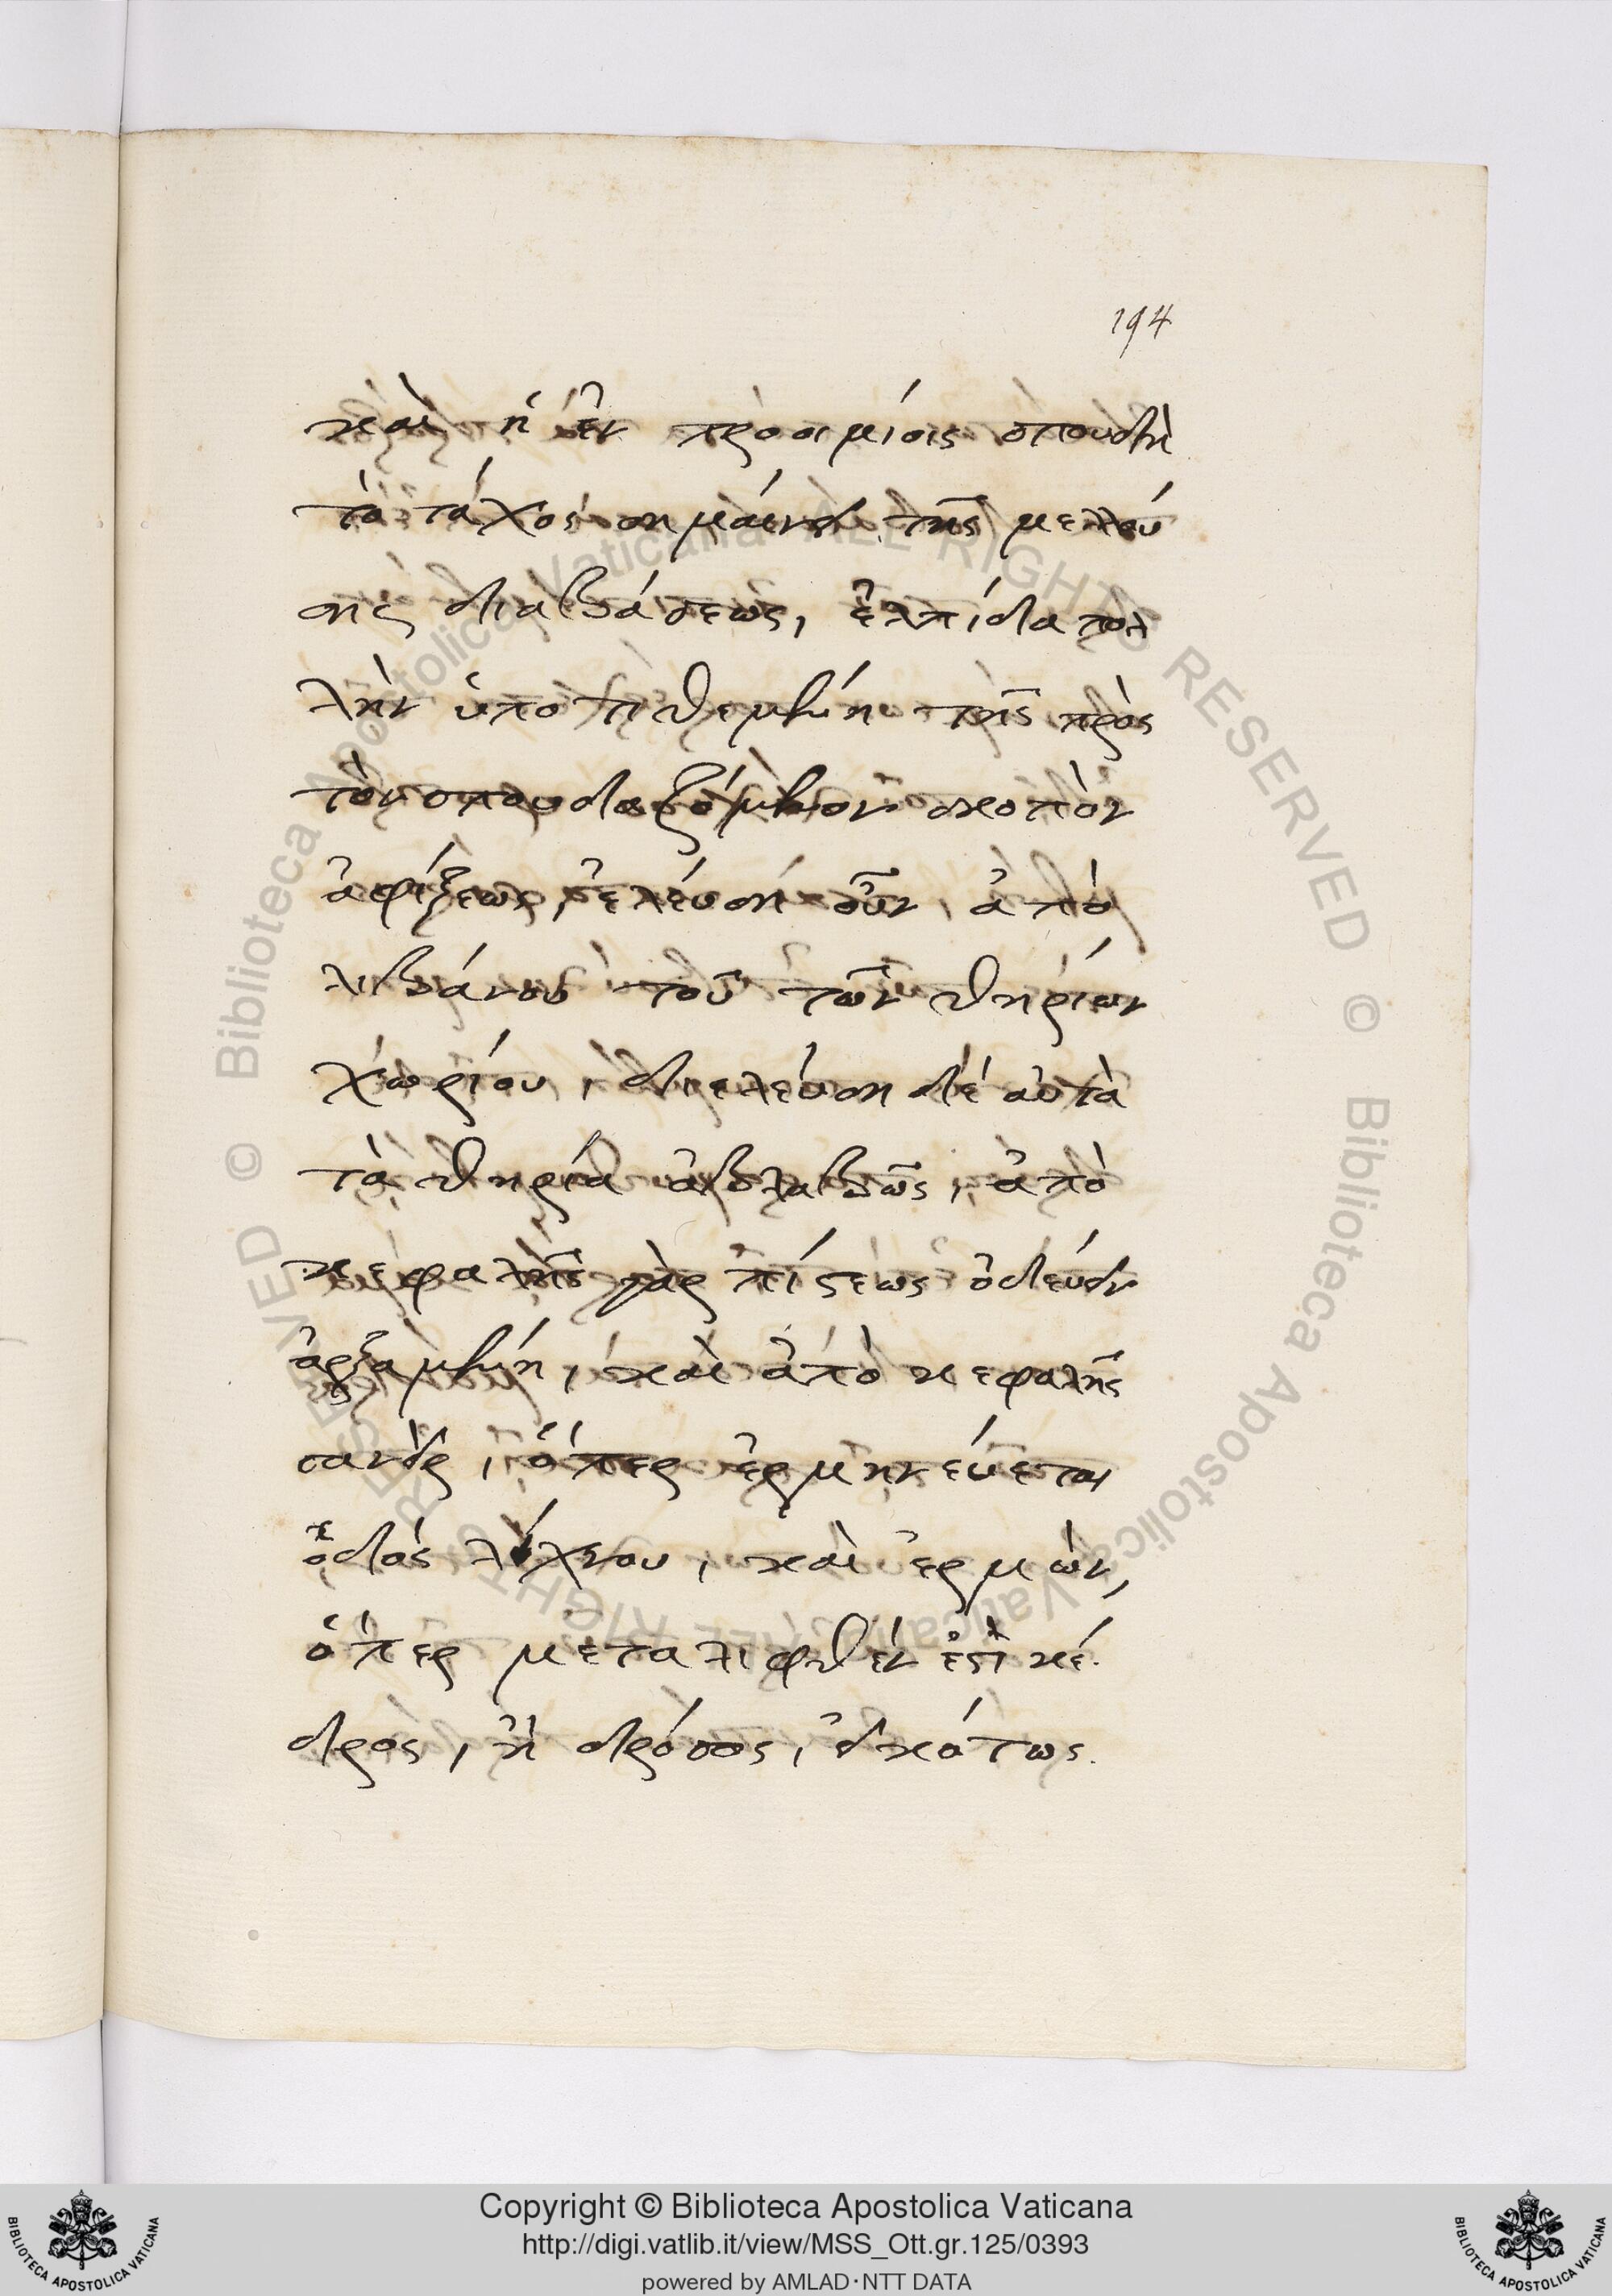 194
καὶ ἡ ἐν προοιμίοις σπουδὴ
τὸ τάχος σημαίνει τῆς μελλού
σης διαβάσεως, ἐλπίδα πολ
λὴν ὑποτιθεμένη τῆς πρὸς
τὸν σπουδαζόμενον σκοπὸν
ἀφίξεως, ἐλεύση οὖν ἀπὸ
λιβάνου τοῦ τῶν θηρίων
χωρίου, διελεύση δέ αὐτὰ
τὰ θηρία ἀβλαβῶς, ἀπὸ
κεφαλῆς γὰρ πίστεως ὁδεύειν
ἀρξαμένη, καὶ ἀπὸ κεφαλῆς
σανὶρ, ὅπερ ἑρμηνεύεται
ὁδὸς λύχνου, καὶ ἑρμὼν,
ὅπερ μεταλιφθέν ἐστὶ κέ
δρος, ἢ δρόσος, εἰκότως.
Copyright © Biblioteca Apostolica Vaticana
http://digi.vatlib.it/view/MSS_Ott.gr.125/0393
powered by AMLAD·NTT DATA
BIBLIOTECA APOSTOLICA VATICANA
BIBLIOTECA APOSTOLICA VATICANA
© Biblioteca Apostolica Vaticana ALL RIGHTS RESERVED © Biblioteca Apostolica Vaticana ALL RIGHTS RESERVED